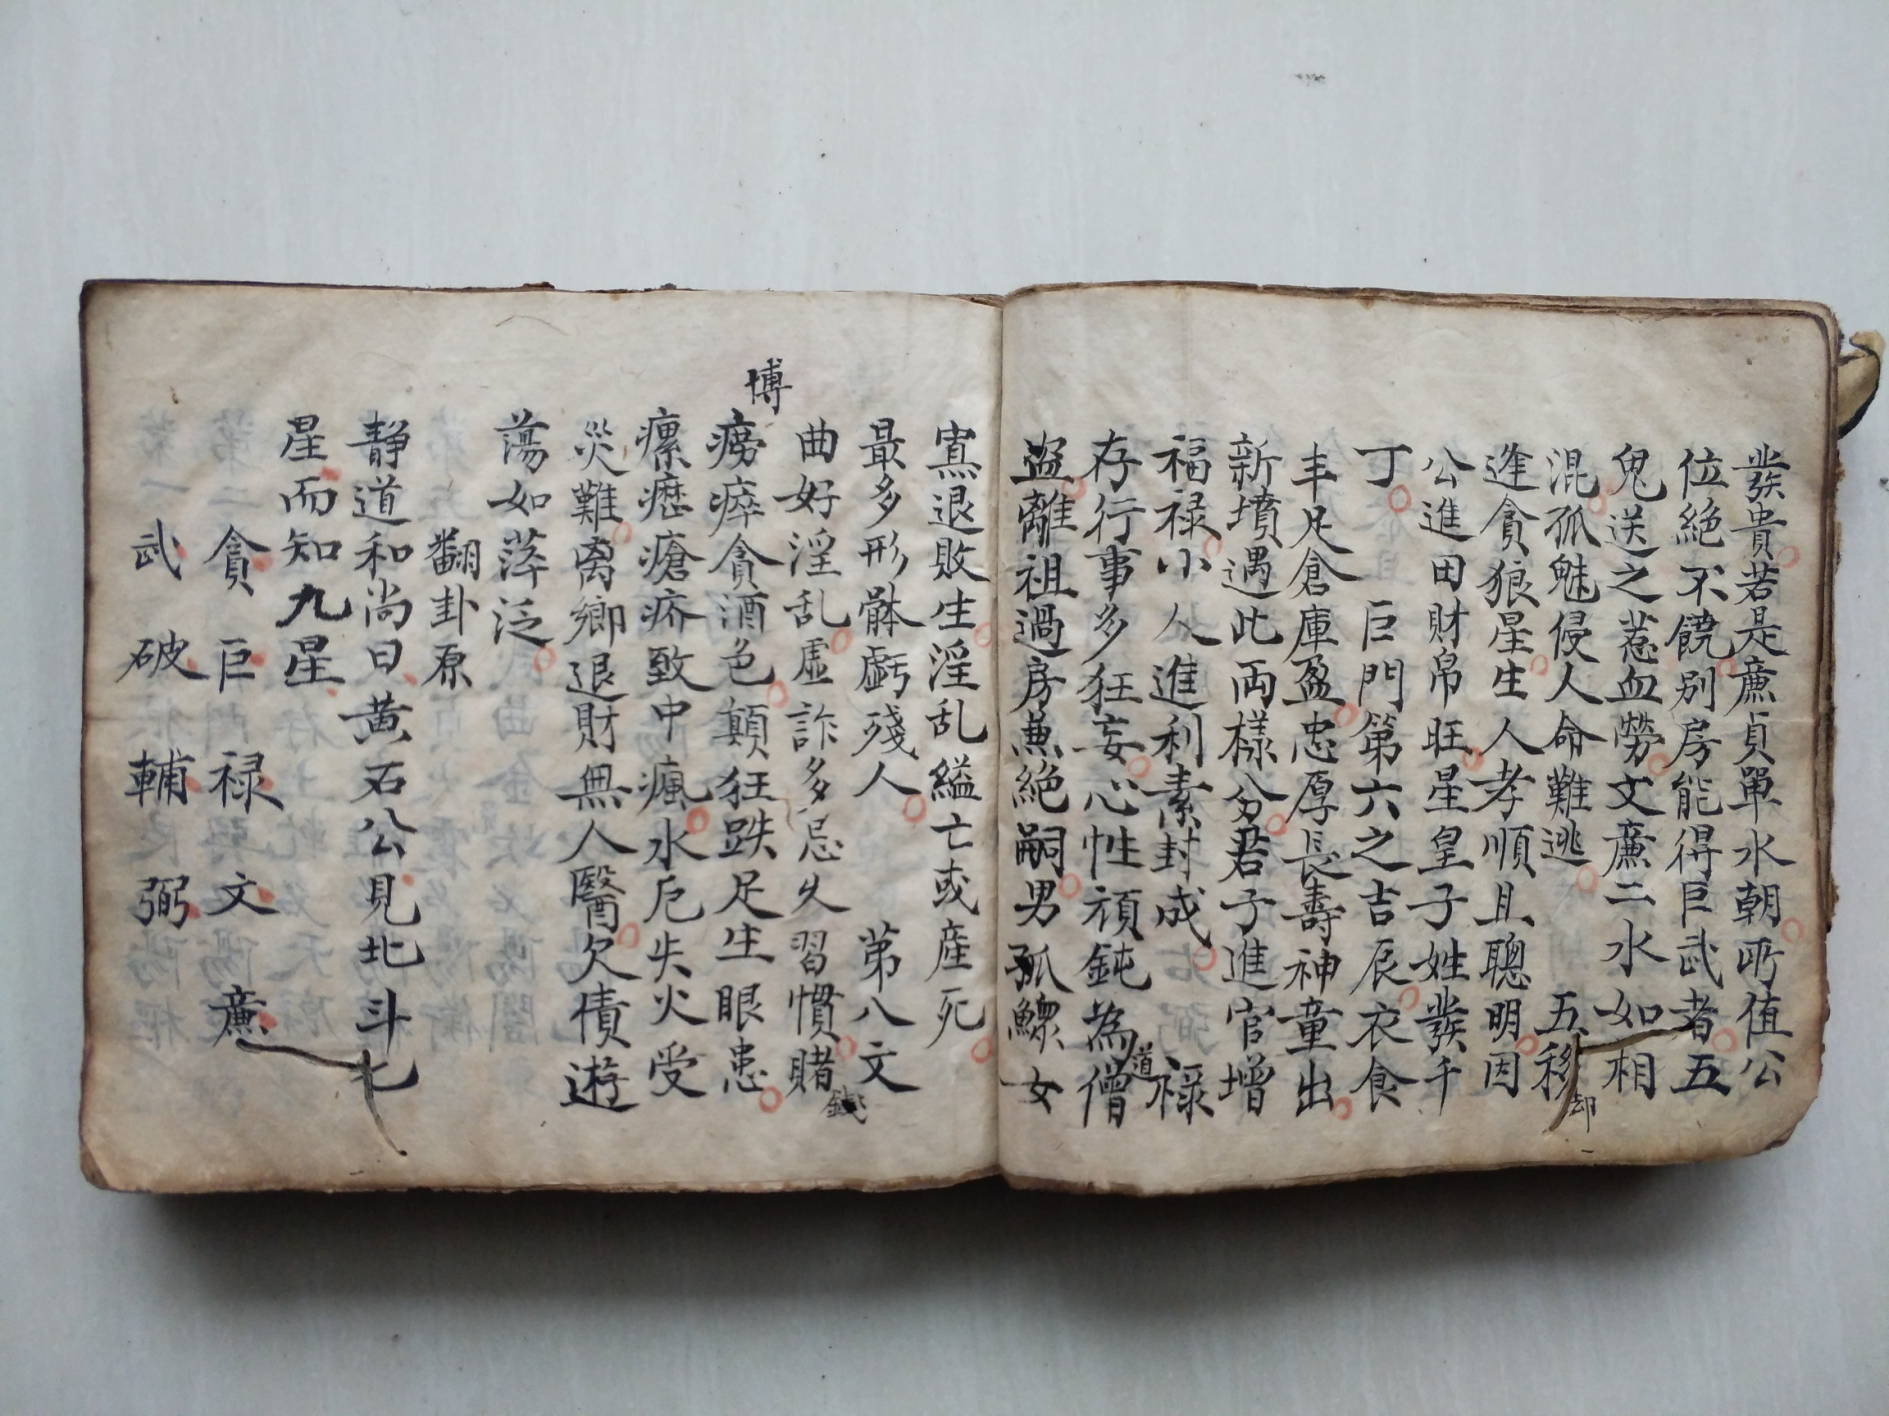 發貴若是廉貞單水朝所值公
位絕不饒別房能得巨武者五
鬼送之惹血勞文廉二水如相
混孤魅侵人命難逃 五移
却
逢貪狼星生人孝順且聰明因
公進田財帛旺星皇子姓發千
丁 巨門第六之吉辰衣食
丰足倉庫盈忠厚長壽神童出
新墳遇此両樣分君子進官增
福禄小人進利素封成 禄
存行事多狂妄心性頑鈍為僧
道
盗離祖過房兼絕嗣男孤鰥女
寡退敗生淫乱縊亡或産死
最多形骵虧殘人 第八文
曲好淫乱虚詐多忌久習慣賭
錢
博
癆瘁貪酒色顛狂跌足生眼患
瘰癧瘡疥致中瘋水厄失火受
災難离鄉退財無人醫欠債遊
蕩如萍泛
翻卦原
静道和尚曰黃石公見北斗七
星而知九星
貪 巨 禄 文 廉
武 破 輔 弼